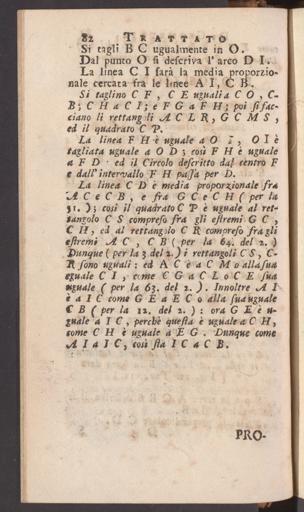 82 TRATTATO
Si tagli B C ugualmente in O.
Dal punto O si descriva l' arco D I.
La linea C I sarà la media proporzio-
nale cercata fra le linee A I, C B.
Si taglino C F, C E uguali a C O, C-
B; C H a C I; e F G a F H; poi si fac-
ciano li rettangoli A C L R, G C M S,
ed il quadrato C P.
La linea F H è uguale a O I, O I è
tagliata uguale a O D; così F H è uguale
a F D ed il Circolo descritto dal centro F
e dall' intervallo F H passa per D.
La linea C D è media proporzionale fra
A C e C B, e fra G C e C H ( per la
31. ); così il quadrato C P è uguale al ret-
tangolo C S compreso fra gli estremi G C,
C H, ed al rettangolo C R compreso fra gli
estremi A C, C B ( per la 64. del 2. )
Dunque ( per la 3 del 2. ) i rettangoli C S, C-
R sono uguali: ed A C è a C M o alla sua
eguale C I, come C G a C L o C E sua
uguale ( per la 63. del 2. ). Innoltre A I
è a I C come G E a E C o alla sua uguale
C B ( per la 12. del 2. ): ora G E è u-
guale a I C, perchè questa è uguale a C H,
come C H è uguale a E G. Dunque come
A I a I C, così sta I C a C B.
PRO-